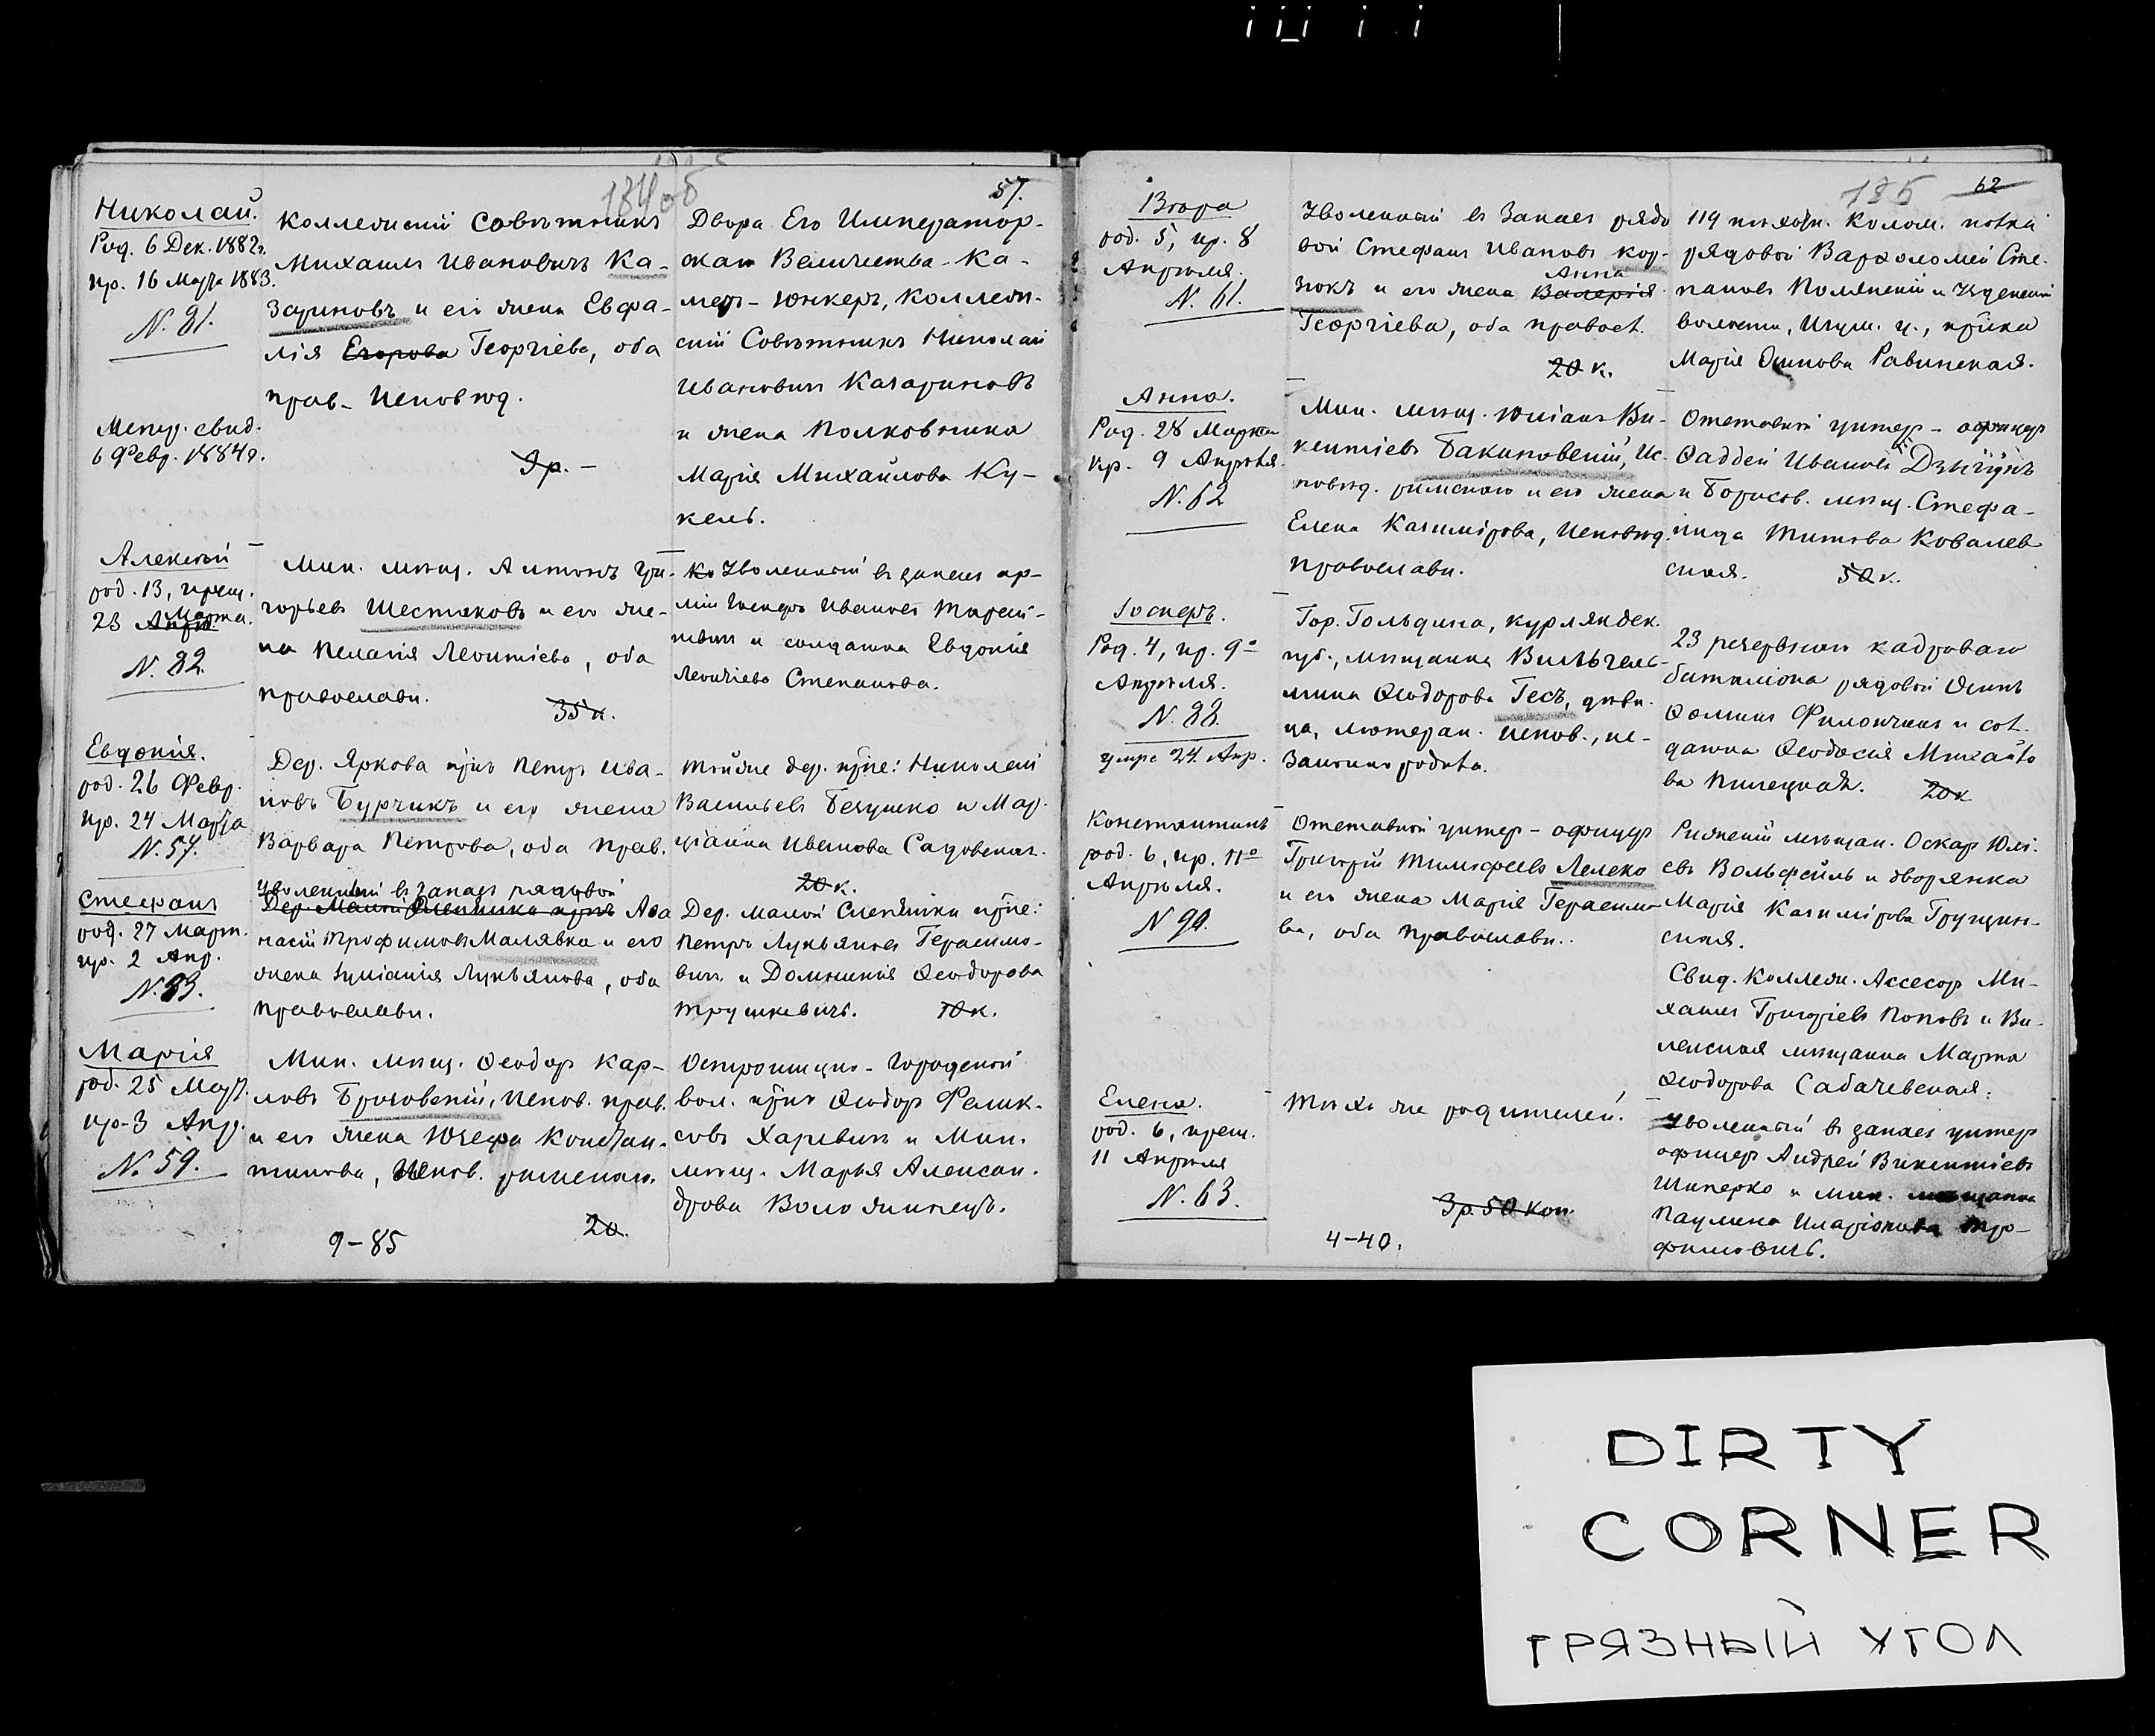 134об
57.
Николай.
Род. 6 Дек. 1882 г.
кр. 16 Марта 1883.
N. 81.
Метр. свид.
6 Февр. 1884 г.
Коллежскій Совѣтникъ
Михаилъ Ивановичъ Ка-
зариновъ и его жена Евфа-
лія Егорова Георгіева, оба
прав. Исповѣд.
3 р. –
Двора Его Император-
скаго Величества Ка-
мер-юнкеръ, Коллеж-
скій Совѣтникъ Николай
Ивановичъ Казариновъ
и жена Полковника
Марія Михайлова Ку-
кель.
Алексѣй
род. 13, крещ.
23 Апр. Марта.
N. 82.
Мин. мѣщ. Антонъ Гри-
горьевъ Шестаковъ и его же-
на Пелагія Леонтіева, оба
православн.
35 к.
Уволенный въ запасъ ар-
міи Иванов
и солдатка Евдокія
Степанова.
Евдокія.
род. 26 Февр.
кр. 24 Марта
N. 57.
Дер. Яркова кр-нъ Петръ Ива-
новъ Бурчикъ и его жена
Варвара Петрова, оба прав.
Той же дер. кр-не: Николай
Васильевъ и Мар-
ціанна Иванова Садовская.
20 к.
Стефанъ
род. 27 Март.
кр. 2 Апр.
N. 83.
Уволенный въ запасъ рядовой
Дер. Малой Слепянки кр-нъ Аѳа
насій Трофимовъ Малявка и его
жена Іуліанія Лукьянова, оба
православн.
Дер. Малой Слепянки кр-не:
Петръ Лукьяновъ Герасимо-
вичъ и Домникія Ѳеодорова
Трушкевичъ. 10 к.
Марія
род. 25 Март.
кр. 3 Апр.
N. 59.
Мин. мѣщ. Ѳеодоръ Кар-
ловъ Бржозовскій, испов. прав.
и его жена Юзефа Констан-
тинова, Испов. римскаго.
20.
Острошицко-Городской
вол. кр-нъ Ѳеодоръ Феликс-
совъ Харевичъ и Мин.
мѣщ. Марья Алексан-
дрова Воложинецъ.
9-85
135
62
Вѣра
род. 5, кр. 8
Апрѣля.
N. 61.
Уволенный въ запасъ рядо
вой Стефанъ Ивановъ Кор-
Анна
зюкъ и его жена Валерія
Георгіева, оба правосл.
20 к.
119 пѣхотн. Колом. полка
рядовой Варѳоломей Сте-
пановъ Полянскій и Узденской
волости, Игум. у., кр-нка
Марія Осипова Равинская.
Анна.
Род. 28 Марта
кр. 9 Апрѣля.
N. 62
Мин. мѣщ. Юліанъ Ви-
кентіевъ Бакиновскій, Ис-
повѣд. римскаго и его жена
Елена Казимірова, Исповѣд.
православн.
Отставной унтер-офицер
Ѳаддей Иванов
и Борисов. мѣщ. Стефа-
нида Титова Ковалев
ская. 50 к.
Іосифъ.
Род. 4, кр. 9-о
Апрѣля.
N. 88.
умре 24 Апр.
Гор. Гольдинга, курляндск.
губ., мѣщанка Вильгель-
мина Ѳеодорова Гесъ, дѣви-
ца, лютеран. испов., не-
законно родила.
23 резервнаго кадроваго
баталіона рядовой Осипъ
Ѳоминъ Филончикъ и сол-
датка Ѳеодосія Михайло
ва Пилецкая. 20 к
Константинъ
род. 6, кр. 11-о
Апрѣля.
N 90.
Отставной унтер-офицер
Григорій Тимоѳеевъ Лелеко
и его жена Марія Герасимо-
ва, оба православн.
Рижскій мѣщан. Оскар Юлі-
евъ Вольфейль и дворянка
Марія Казимірова Грущин-
ская.
Свид. Коллеж. Ассесор Ми-
хаилъ Григорьевъ Поповъ и Ви-
ленская мѣщанка Марта
Ѳеодорова Сабачевская.
Елена.
род. 6, крещ.
11 Апрѣля
N. 63.
Тѣхъ же родителей.
3 р. 50 коп.
Уволенный въ запасъ унтер
офицер Андрей Викентіевъ
Шиперко и Мин. мѣщанка
Паулина Иларіонова Тро-
фимовичъ.
4-40.
DIRTY
CORNER
ГРЯЗНЫЙ УГОЛ